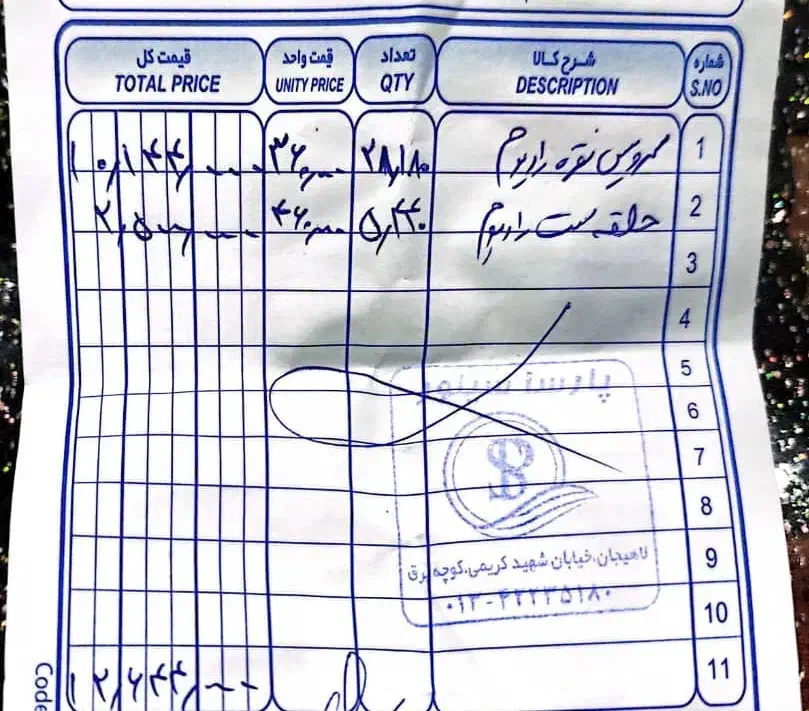 شماره شرح کالا تعداد قیمت واحد قیمت کل
S.NO DESCRIPTION QTY UNITY PRICE TOTAL PRICE
1 سرویس نقره رادیوم ۲۸,۱۸۰ ۳۶۰,۰۰۰ ۱۰,۱۴۴,۰۰۰
2 حلقه ست رادیوم ۵,۴۴۰ ۴۶۰,۰۰۰ ۲,۵۰۰,۰۰۰
3
4
5
پارسا سیلور
6
7
8
9
لاهیجان.خیابان شهید کریمی.کوچه برق
۰۱۳-۴۲۲۳۵۱۸۰
10
11 ۱۲,۶۴۴,۰۰۰
Code